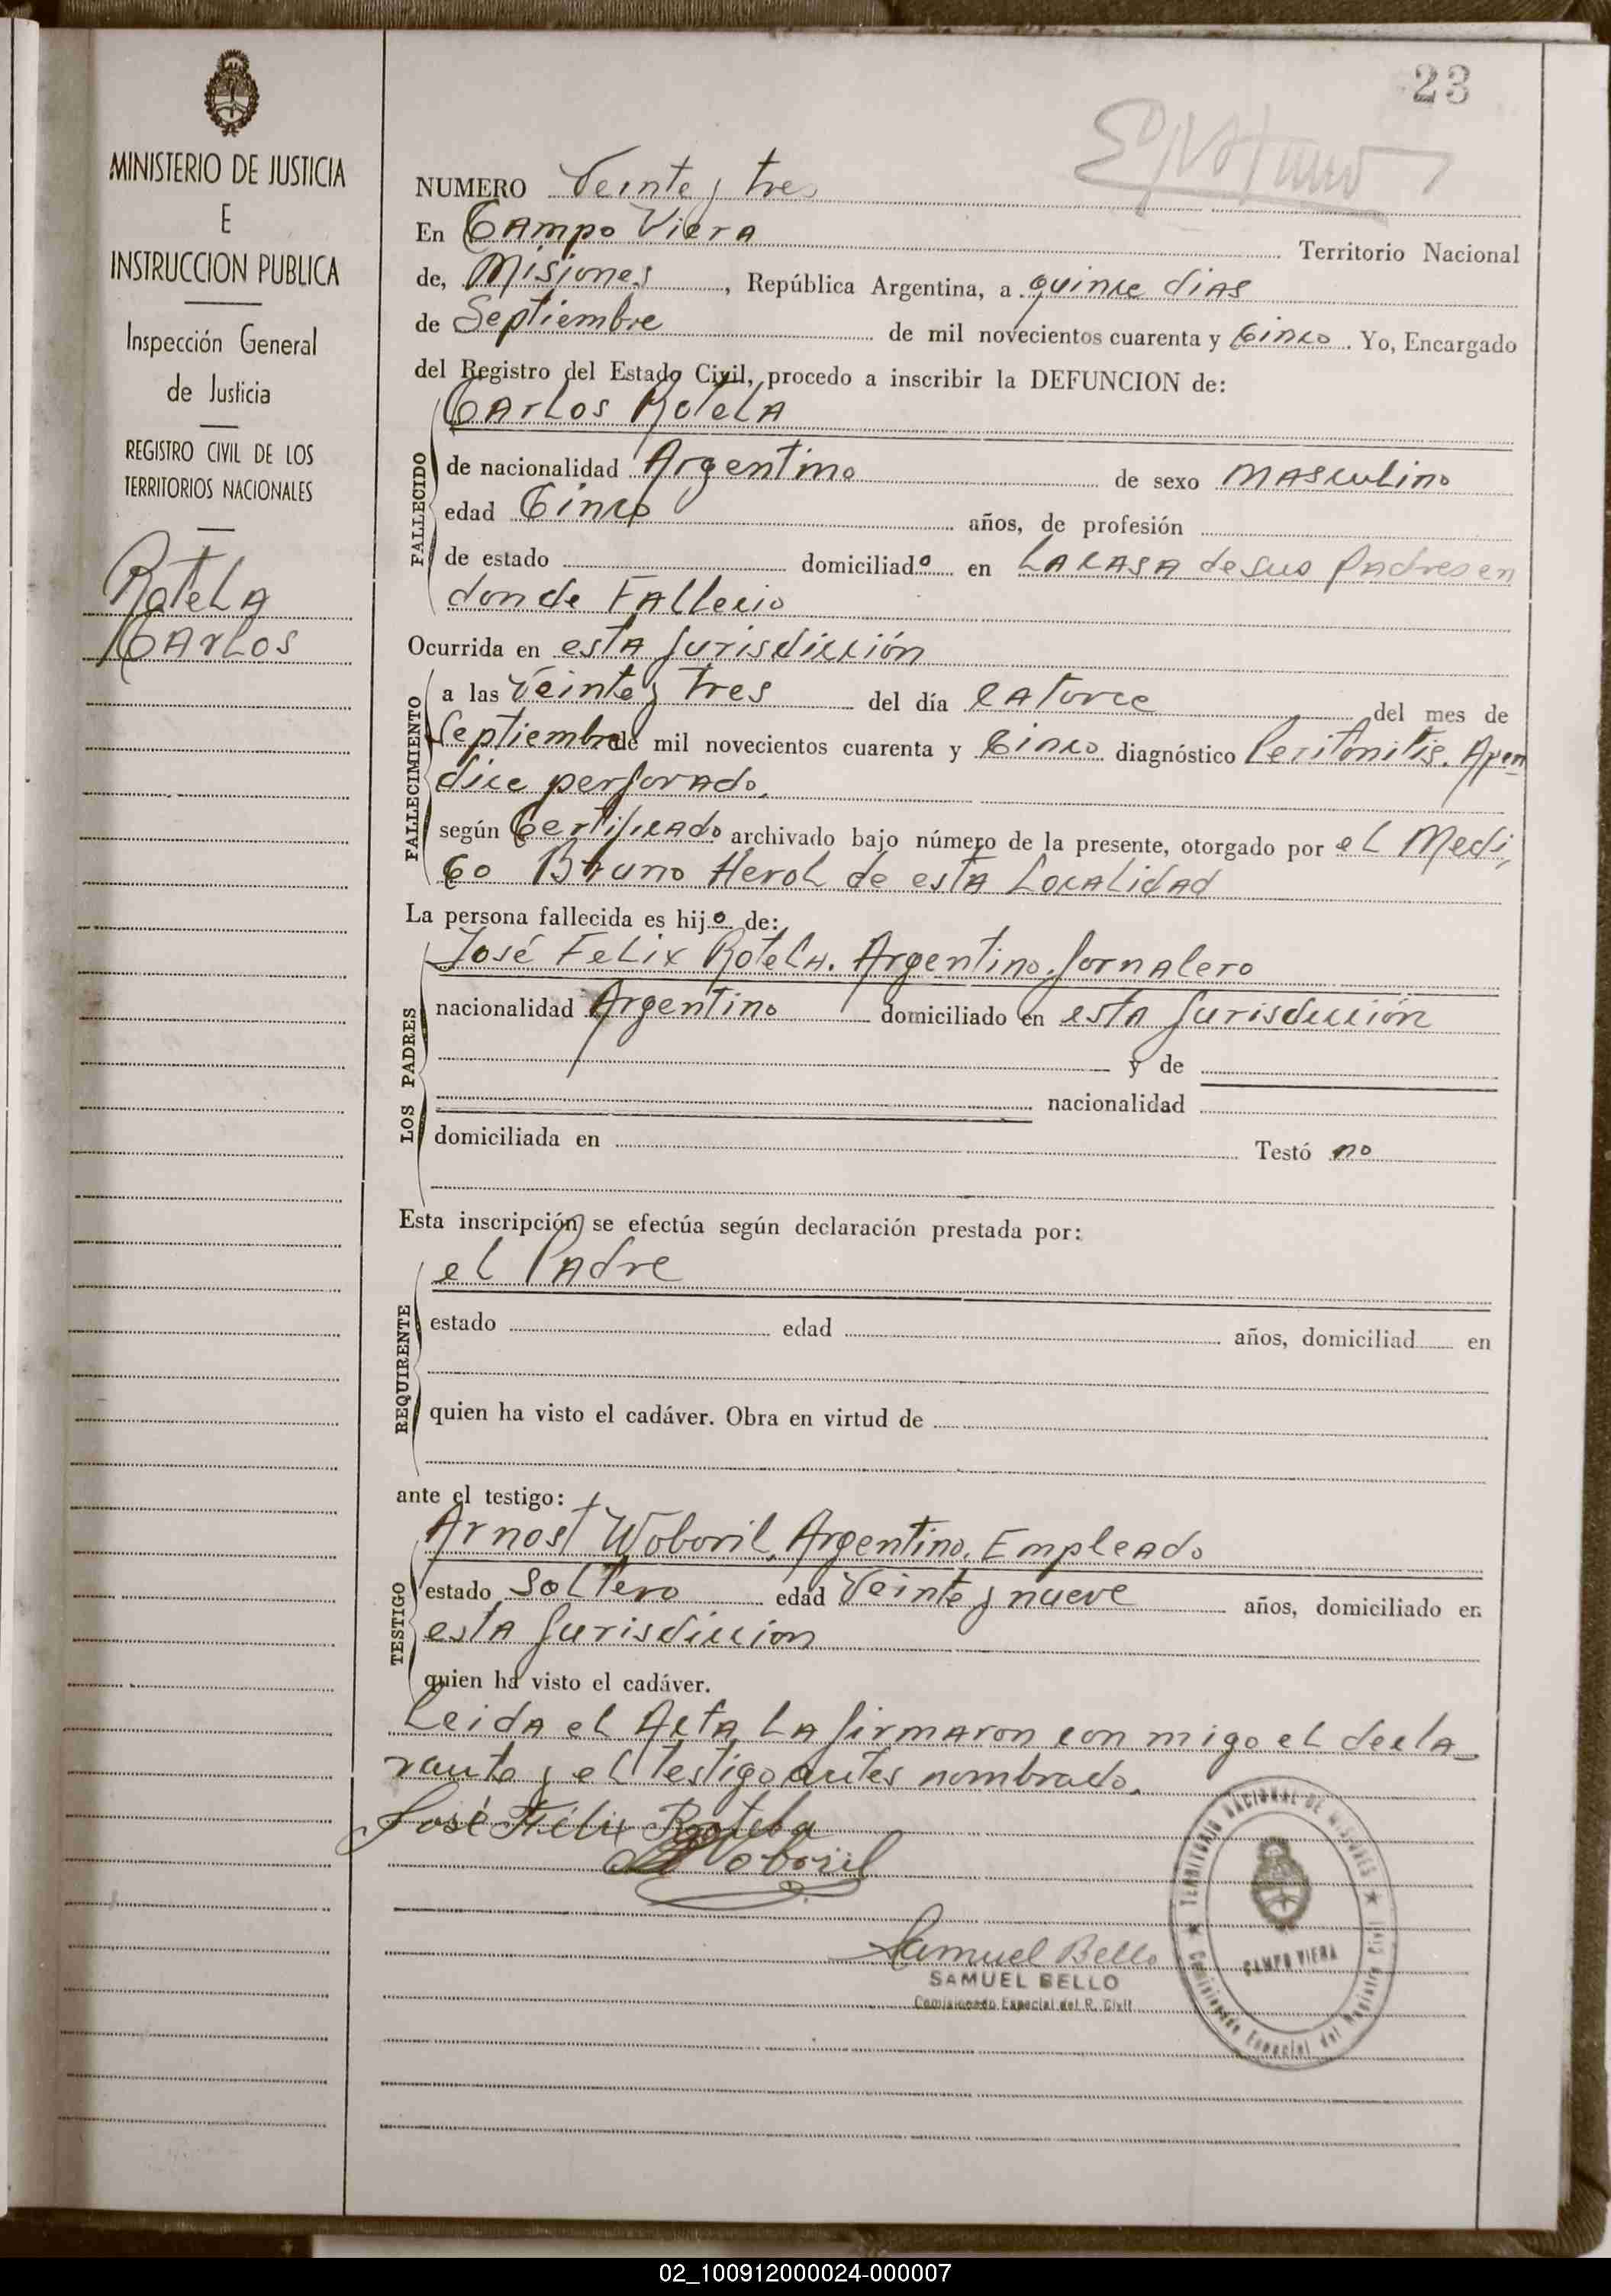 23
MINISTERIO DE JUSTICIA
E
INSTRUCCION PUBLICA
Inspección General
de Justicia
REGISTRO CIVIL DE LOS
TERRITORIOS NACIONALES
Rotela
Carlos
NUMERO Veinte y tres
En Campo Viera Territorio Nacional
de, Misiones, República Argentina, a quince dias
de Septiembre de mil novecientos cuarenta y Cinco. Yo, Encargado
del Registro del Estado Civil, procedo a inscribir la DEFUNCION de:
Carlos Rotela
FALLECIDO
de nacionalidad Argentino de sexo masculino
edad Cinco años, de profesión
de estado domiciliado en La casa de sus Padres en
donde Fallecio
Ocurrida en esta Jurisdicción
FALLECIMIENTO
a las Veinte y Tres del día catorce del mes de
Septiembre de mil novecientos cuarenta y Cinco diagnóstico Peritonitis. Apen
dice perforado.
según Certificado archivado bajo número de la presente, otorgado por el Medi,
Co Bruno Herol de esta Localidad
La persona fallecida es hijo de:
José Felix Rotela. Argentino. Jornalero
LOS PADRES
nacionalidad Argentino domiciliado en esta Jurisdicción
y de
nacionalidad
domiciliada en Testó no
Esta inscripción se efectúa según declaración prestada por:
el Padre
REQUIRENTE
estado edad años, domiciliad en
quien ha visto el cadáver. Obra en virtud de
ante el testigo:
Arnost Woboril, Argentino, Empleado
TESTIGO
estado Soltero edad Veinte y nueve años, domiciliado en
esta Jurisdiccion
quien ha visto el cadáver.
Leida el Acta La firmaron con migo el decla-
rante y el testigo antes nombrado.
José Félix Rotela
Woboril
Samuel Bello
SAMUEL BELLO
Comisionado Especial del R. Civil
TERRITORIO NACIONAL DE MISIONES
CAMPO VIERA
Comisionado Especial del Registro Civil
02_100912000024-000007